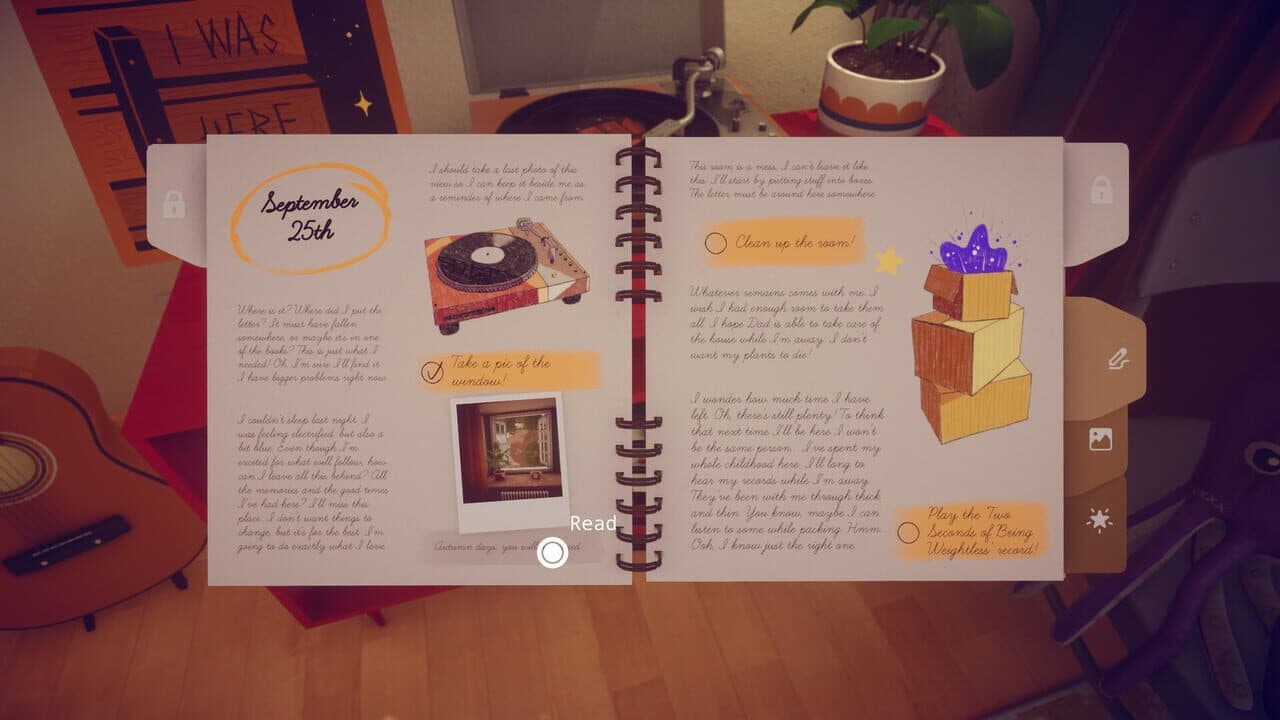 I WAS
HERE
September
25th
Where is it? Where did I put the
letter? It must have fallen
somewhere, or maybe it's in one
of the books? This is just what I
needed! Oh, I'm sure I'll find it.
I have bigger problems right now.
I couldn't sleep last night. I
was feeling electrified, but also a
bit blue. Even though I'm
excited for what will follow, how
can I leave all this behind? All
the memories and the good times
I've had here? I'll miss this
place. I don't want things to
change, but it's for the best. I'm
going to do exactly what I love.
I should take a last photo of this
view so I can keep it beside me as
a reminder of where I came from.
Take a pic of the
window!
Read
Autumn days, you will
This room is a mess. I can't leave it like
this. I'll start by putting stuff into boxes.
The letter must be around here somewhere.
Clean up the room!
Whatever remains comes with me. I
wish I had enough room to take them
all. I hope Dad is able to take care of
the house while I'm away. I don't
want my plants to die!
I wonder how much time I have
left. Oh, there's still plenty! To think
that next time I'll be here I won't
be the same person... I've spent my
whole childhood here. I'll long to
hear my records while I'm away.
They've been with me through thick
and thin. You know, maybe I can
listen to some while packing. Hmm...
Ooh, I know just the right one.
Play the Two
Seconds of Being
Weightless record!